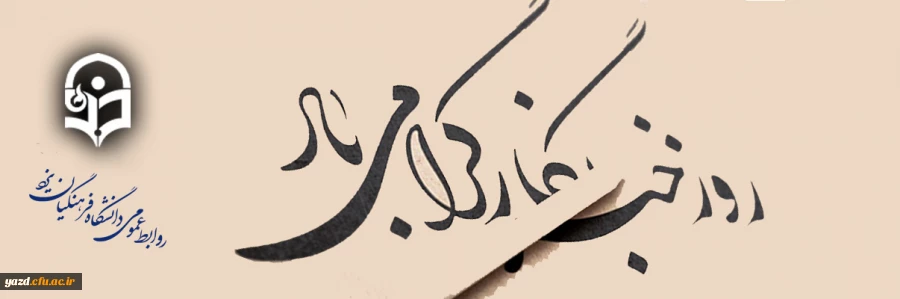 روز خبرنگار گرامی باد
روابط عمومی دانشگاه فرهنگیان یزد
yazd.cfu.ac.ir